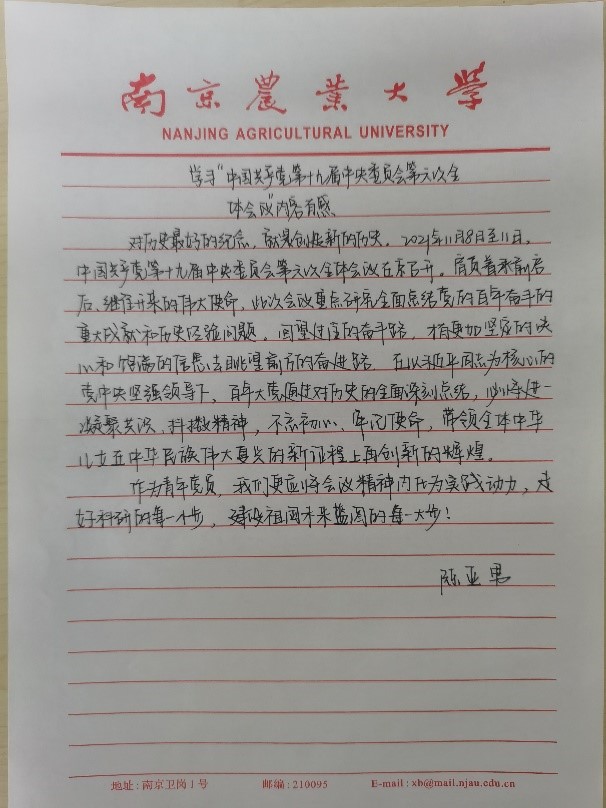 南京農業大学
NANJING AGRICULTURAL UNIVERSITY
学习“中国共产党第十九届中央委员会第六次全
体会议”内容有感
对历史最好的纪念，就是创造新的历史。2021年11月8日至11日，
中国共产党第十九届中央委员会第六次全体会议在京召开。肩负着承前启
后、继往开来的伟大使命，此次会议重点研究全面总结党的百年奋斗的
重大成就和历史经验问题。回望过往的奋斗路，才有更加坚定的决
心和饱满的信念去眺望前方的奋进路。在以习近平同志为核心的
党中央坚强领导下，百年大党通过对历史的全面深刻总结，必将进一
凝聚共识、抖擞精神，不忘初心、牢记使命，带领全体中华
儿女在中华民族伟大复兴的新征程上再创新的辉煌。
作为青年党员，我们更应将会议精神内化为实践动力，走
好科研的每一小步，建设祖国未来蓝图的每一大步！
陈亚男
地址：南京卫岗1号 邮编：210095 E-mail：xb@mail.njau.edu.cn